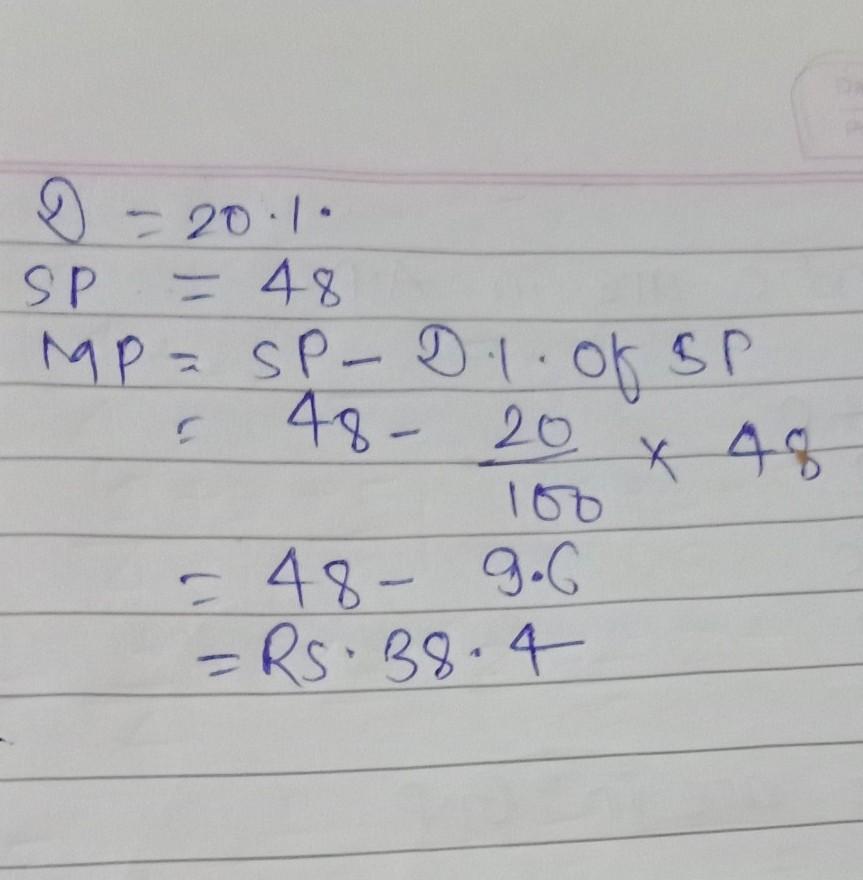 D = 20%
SP = 48
MP = SP - D% Of SP
= 48 - 20/100 × 48
= 48 - 9.6
= RS. 38.4